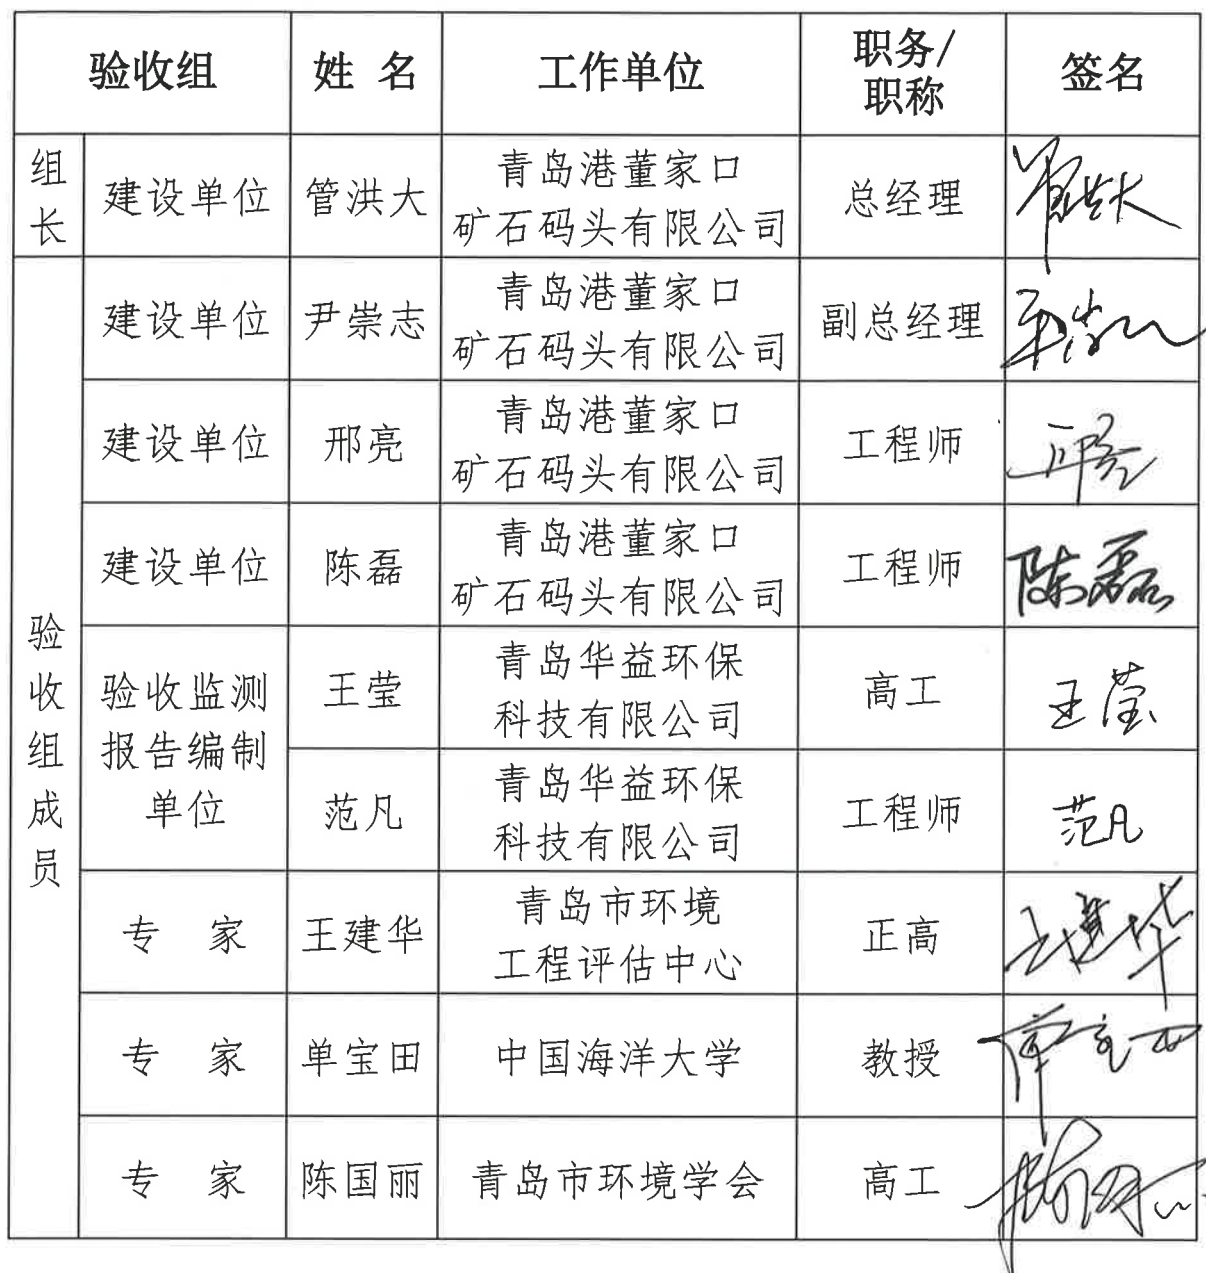 验收组 姓 名 工作单位 职务/职称 签名
组长 建设单位 管洪大 青岛港董家口矿石码头有限公司 总经理 管洪大
验收组成员
建设单位 尹崇志 青岛港董家口矿石码头有限公司 副总经理
建设单位 邢亮 青岛港董家口矿石码头有限公司 工程师 邢亮
建设单位 陈磊 青岛港董家口矿石码头有限公司 工程师 陈磊
验收监测报告编制单位 王莹 青岛华益环保科技有限公司 高工 王莹
范凡 青岛华益环保科技有限公司 工程师 范凡
专 家 王建华 青岛市环境工程评估中心 正高 王建华
专 家 单宝田 中国海洋大学 教授 单宝田
专 家 陈国丽 青岛市环境学会 高工